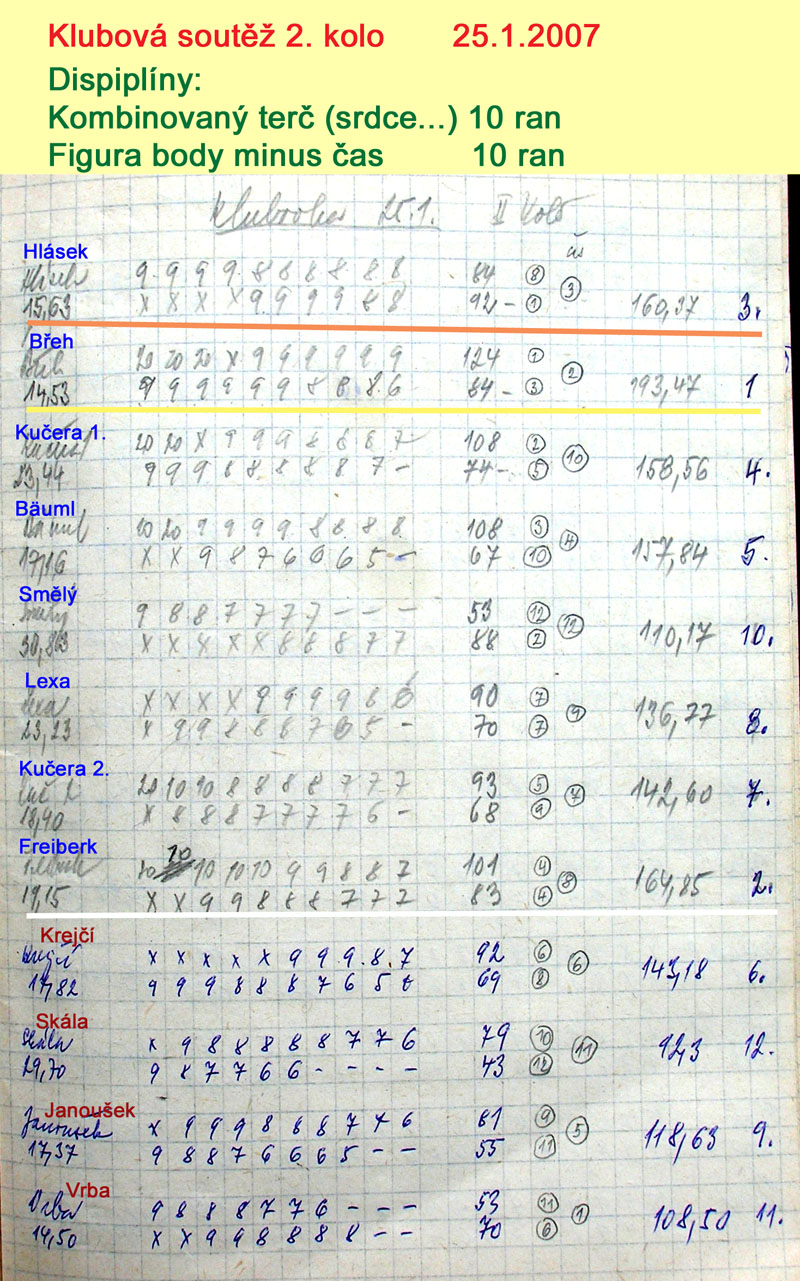 Klubová soutěž 2. kolo 25.1.2007
Dispiplíny:
Kombinovaný terč (srdce...) 10 ran
Figura body minus čas 10 ran
25.1. II Kolo
Hlásek
9 9 9 9 8 8 8 8 8 8 84 8
15,63 x x x x 9 9 9 9 8 8 92 - 1 3 160,37 3.
Břeh
20 20 20 x 9 9 9 9 9 9 124 1
14,53 9 9 9 9 9 9 8 8 8 6 84 - 3 2 193,47 1
Kučera 1.
20 20 x 9 9 9 8 8 8 7 108 2
23,44 9 9 9 8 8 8 8 8 7 - 74 - 5 10 158,56 4.
Bäuml
20 20 9 9 9 9 8 8 8 8 108 3
17,16 x x 9 8 7 6 6 6 5 - 67 10 4 157,84 5.
Smělý
9 8 8 7 7 7 7 - - - 53 12
30,83 x x x x x 8 8 8 7 7 88 2 12 110,17 10.
Lexa
x x x x 9 9 9 9 8 8 90 7
23,23 x 9 9 8 8 8 7 6 5 - 70 7 9 136,77 8.
Kučera 2.
20 10 10 8 8 8 8 7 7 7 93 5
18,40 x 8 8 8 7 7 7 7 6 - 68 9 7 142,60 7.
Freiberk
10
10 10 10 9 9 8 8 7 101 4
19,15 x x 9 9 8 8 8 7 7 7 83 4 8 164,85 2.
Krejčí
Krejčí x x x x x 9 9 9 8 7 92 6
17,82 9 9 9 8 8 8 7 6 5 69 8 6 143,18 6.
Skála
Skála x 9 8 8 8 8 8 7 7 6 79 10
29,70 9 8 7 7 6 6 - - - - 43 12 11 92,3 12.
Janoušek
Janoušek x 9 9 9 8 8 8 7 7 6 81 9
17,37 9 8 8 7 6 6 6 5 - - 55 11 5 118,63 9.
Vrba
Vrba 9 8 8 8 7 7 6 - - - 53 11
14,50 x x 9 9 8 8 8 8 - - 70 6 1 108,50 11.